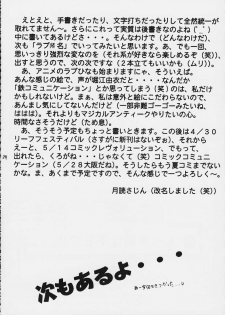 えとえと、手書きだったり、文字打ちだったりして全然統一が
取れてませんへ。さらにこれって実質は後書きなのよね(_ _)
中に書いてあるけどさ・・・。そんなわけで(どんなわけだ)、
次は「ラブ#名」でいってみたいと思います。あ、でも一回、
思いっきり強烈な変なのを(それ系が好きなら楽しめるぞ(笑))
出すと思うので、次の次ですな(2本立てでもいいか(ムリ))。
あ、アニメのラブひな始まりますにゃ。すばらしい。
あんな感じの絵で、声が堀江由衣だと・・・・・、なんだか
「鉄コミュニケーション」とか思ってしまう(笑)のは、私だけ
かもしれないけど。まぁ、私は意外と絵にこだわらないので、
あんまし気にしてないんだけど(一部非難ゴーゴーみたいね)、
それはともかくとしてマジカルアンティークやりたい心に。
時間なさそうだけど(ため息)。
あ、そうそう予定もちょっと書いときます。この後は4/30
リーフフェスティバル(さすがに新刊はないぞ)、それから
えーと、5/14コミックレヴォリューション、でもって、
出れたら、くろがね・・・じゃなくて(笑)コミックコミュニ
ケーション(5/28大阪だな)。そしたらもう夏コミまでない
かな。ま、あくまで予定ですので、そんな感じでーつよろしく〜。
月読さじん(改名しました(笑))
次もあるよ・・・